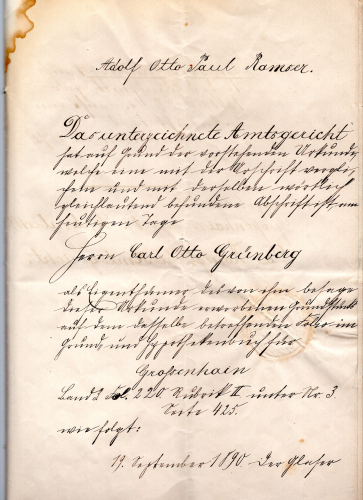 Adolf Otto Paul Ramser.
Das unterzeichnete Amtsgericht
hat auf Grund der vorstehenden Urkunde,
welche nun mit der Urschrift vergli-
chen und mit derselben wörtlich
gleichlautend befundene Abschrift ist, am
heutigen Tage
Herrn Carl Otto Grünberg
als Eigenthümer des von ihm besage
dieser Urkunde erworbenen Grundstück
auf dem dasselbe betreffenden Folio im
Grund- und Hypothekenbuch für
Großenhain
Band 2 Fol. 220. Rubrik II unter Nr. 3.
Seite 425.
wie folgt:
19. September 1890 Der Glaser